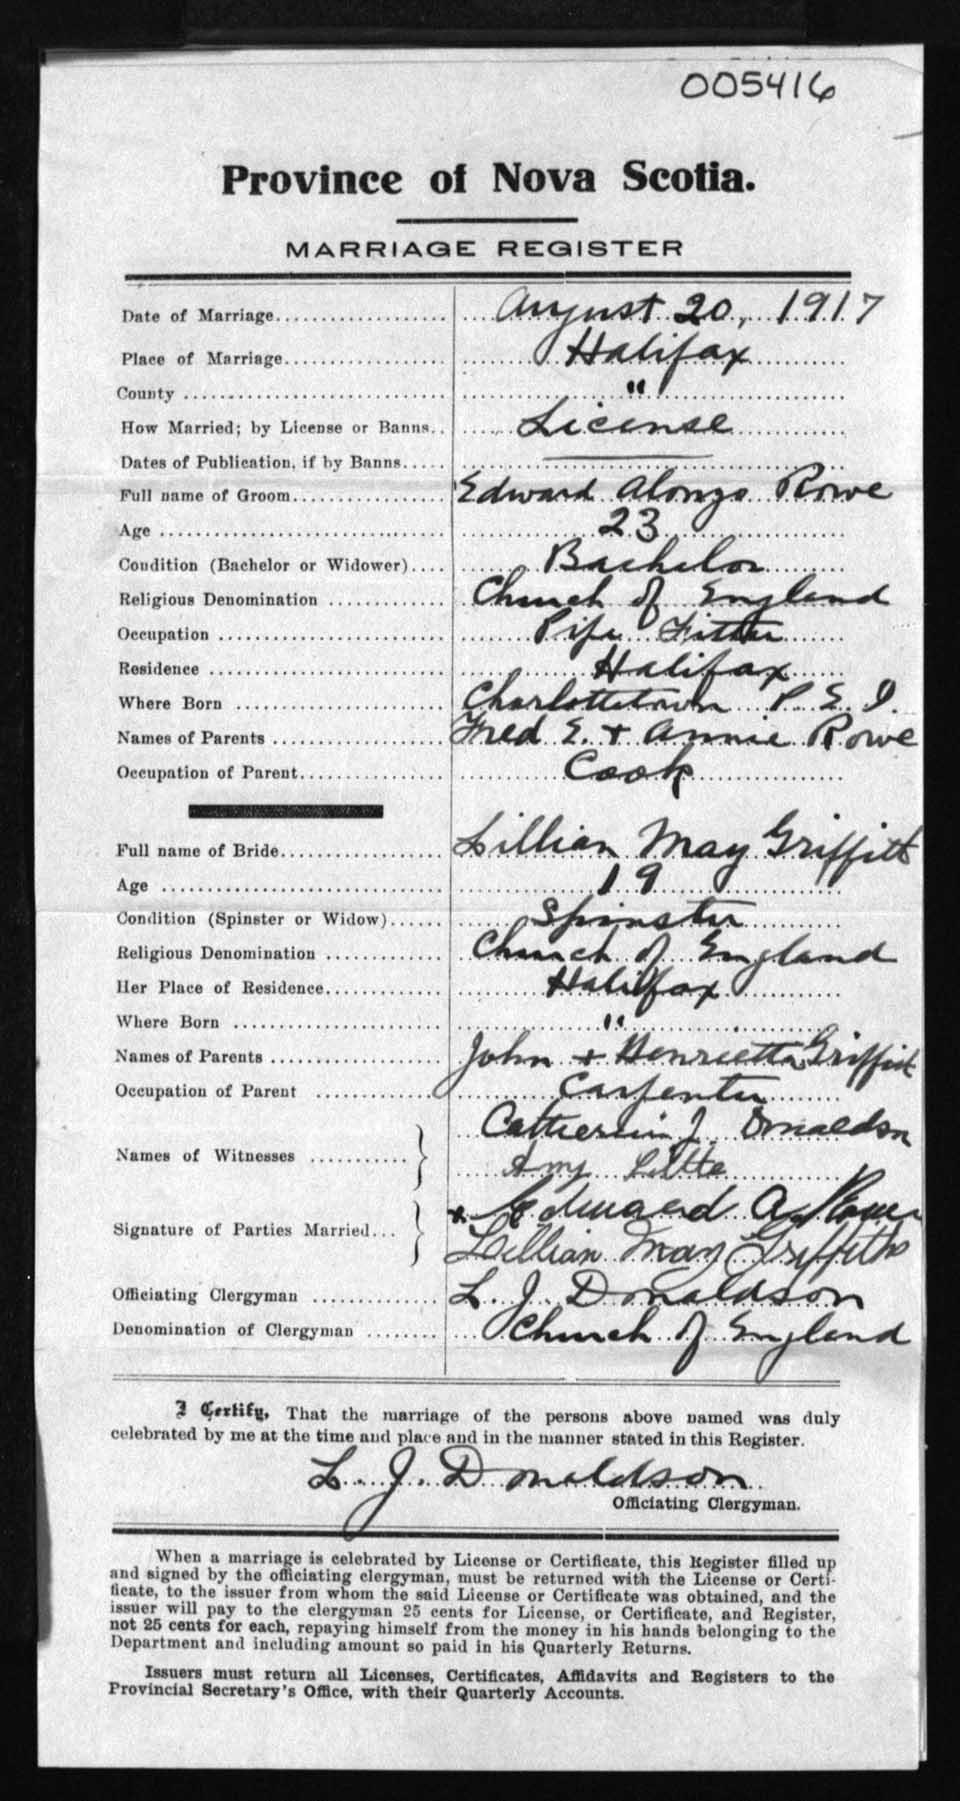 005416
Province of Nova Scotia.
MARRIAGE REGISTER
Date of Marriage August 20, 1917
Place of Marriage Halifax
County "
How Married; by License or Banns License
Dates of Publication, if by Banns
Full name of Groom Edward Alonzo Rowe
Age 23
Condition (Bachelor or Widower) Bachelor
Religious Denomination Church of England
Occupation Pipe Fitter
Residence Halifax
Where Born Charlottetown P. E. I.
Names of Parents Fred E. + Annie Rowe
Occupation of Parent Cook
Full name of Bride Lillian May Griffith
Age 19
Condition (Spinster or Widow) Spinster
Religious Denomination Church of England
Her Place of Residence Halifax
Where Born "
Names of Parents John + Henrietta Griffith
Occupation of Parent Carpenter
Names of Witnesses J. Donaldson
Amy
Signature of Parties Married Edward A.
Lillian May Griffiths
Officiating Clergyman L. J. Donaldson
Denomination of Clergyman Church of England
I Certify, That the marriage of the persons above named was duly
celebrated by me at the time and place and in the manner stated in this Register.
L. J. Donaldson
Officiating Clergyman.
When a marriage is celebrated by License or Certificate, this Register filled up
and signed by the officiating clergyman, must be returned with the License or Certi-
ficate, to the issuer from whom the said License or Certificate was obtained, and the
issuer will pay to the clergyman 25 cents for License, or Certificate, and Register,
not 25 cents for each, repaying himself from the money in his hands belonging to the
Department and including amount so paid in his Quarterly Returns.
Issuers must return all Licenses, Certificates, Affidavits and Registers to the
Provincial Secretary's Office, with their Quarterly Accounts.